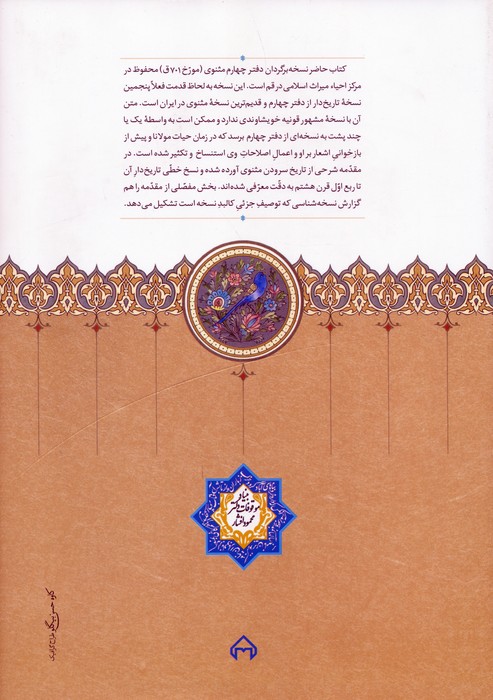 کتاب حاضر نسخه‌برگردان دفتر چهارم مثنوی (مورّخ ۷۰۱ق) محفوظ در
مرکز احیاء میراث اسلامی در قم است. این نسخه به لحاظ قدمت فعلاً پنجمین
نسخهٔ تاریخ‌دار از دفتر چهارم و قدیم‌ترین نسخهٔ مثنوی در ایران است. متن
آن با نسخهٔ مشهور قونیه خویشاوندی ندارد و ممکن است به واسطهٔ یک یا
چند پشت به نسخه‌ای از دفتر چهارم برسد که در زمان حیات مولانا و پیش از
بازخوانیِ اشعار بر او و اعمالِ اصلاحاتِ وی استنساخ و تکثیر شده است. در
مقدّمه شرحی از تاریخ سرودن مثنوی آورده شده و نسخ خطّی تاریخ‌دارِ آن
تا ربع اوّل قرن هشتم به دقّت معرّفی شده‌اند. بخش مفصّلی از مقدّمه را هم
گزارش نسخه‌شناسی که توصیفِ جزئیِ کالبدِ نسخه است تشکیل می‌دهد.
بنیاد
موقوفات دکتر
محمود افشار
کاوه حسن‌بیگلو طراح گرافیک